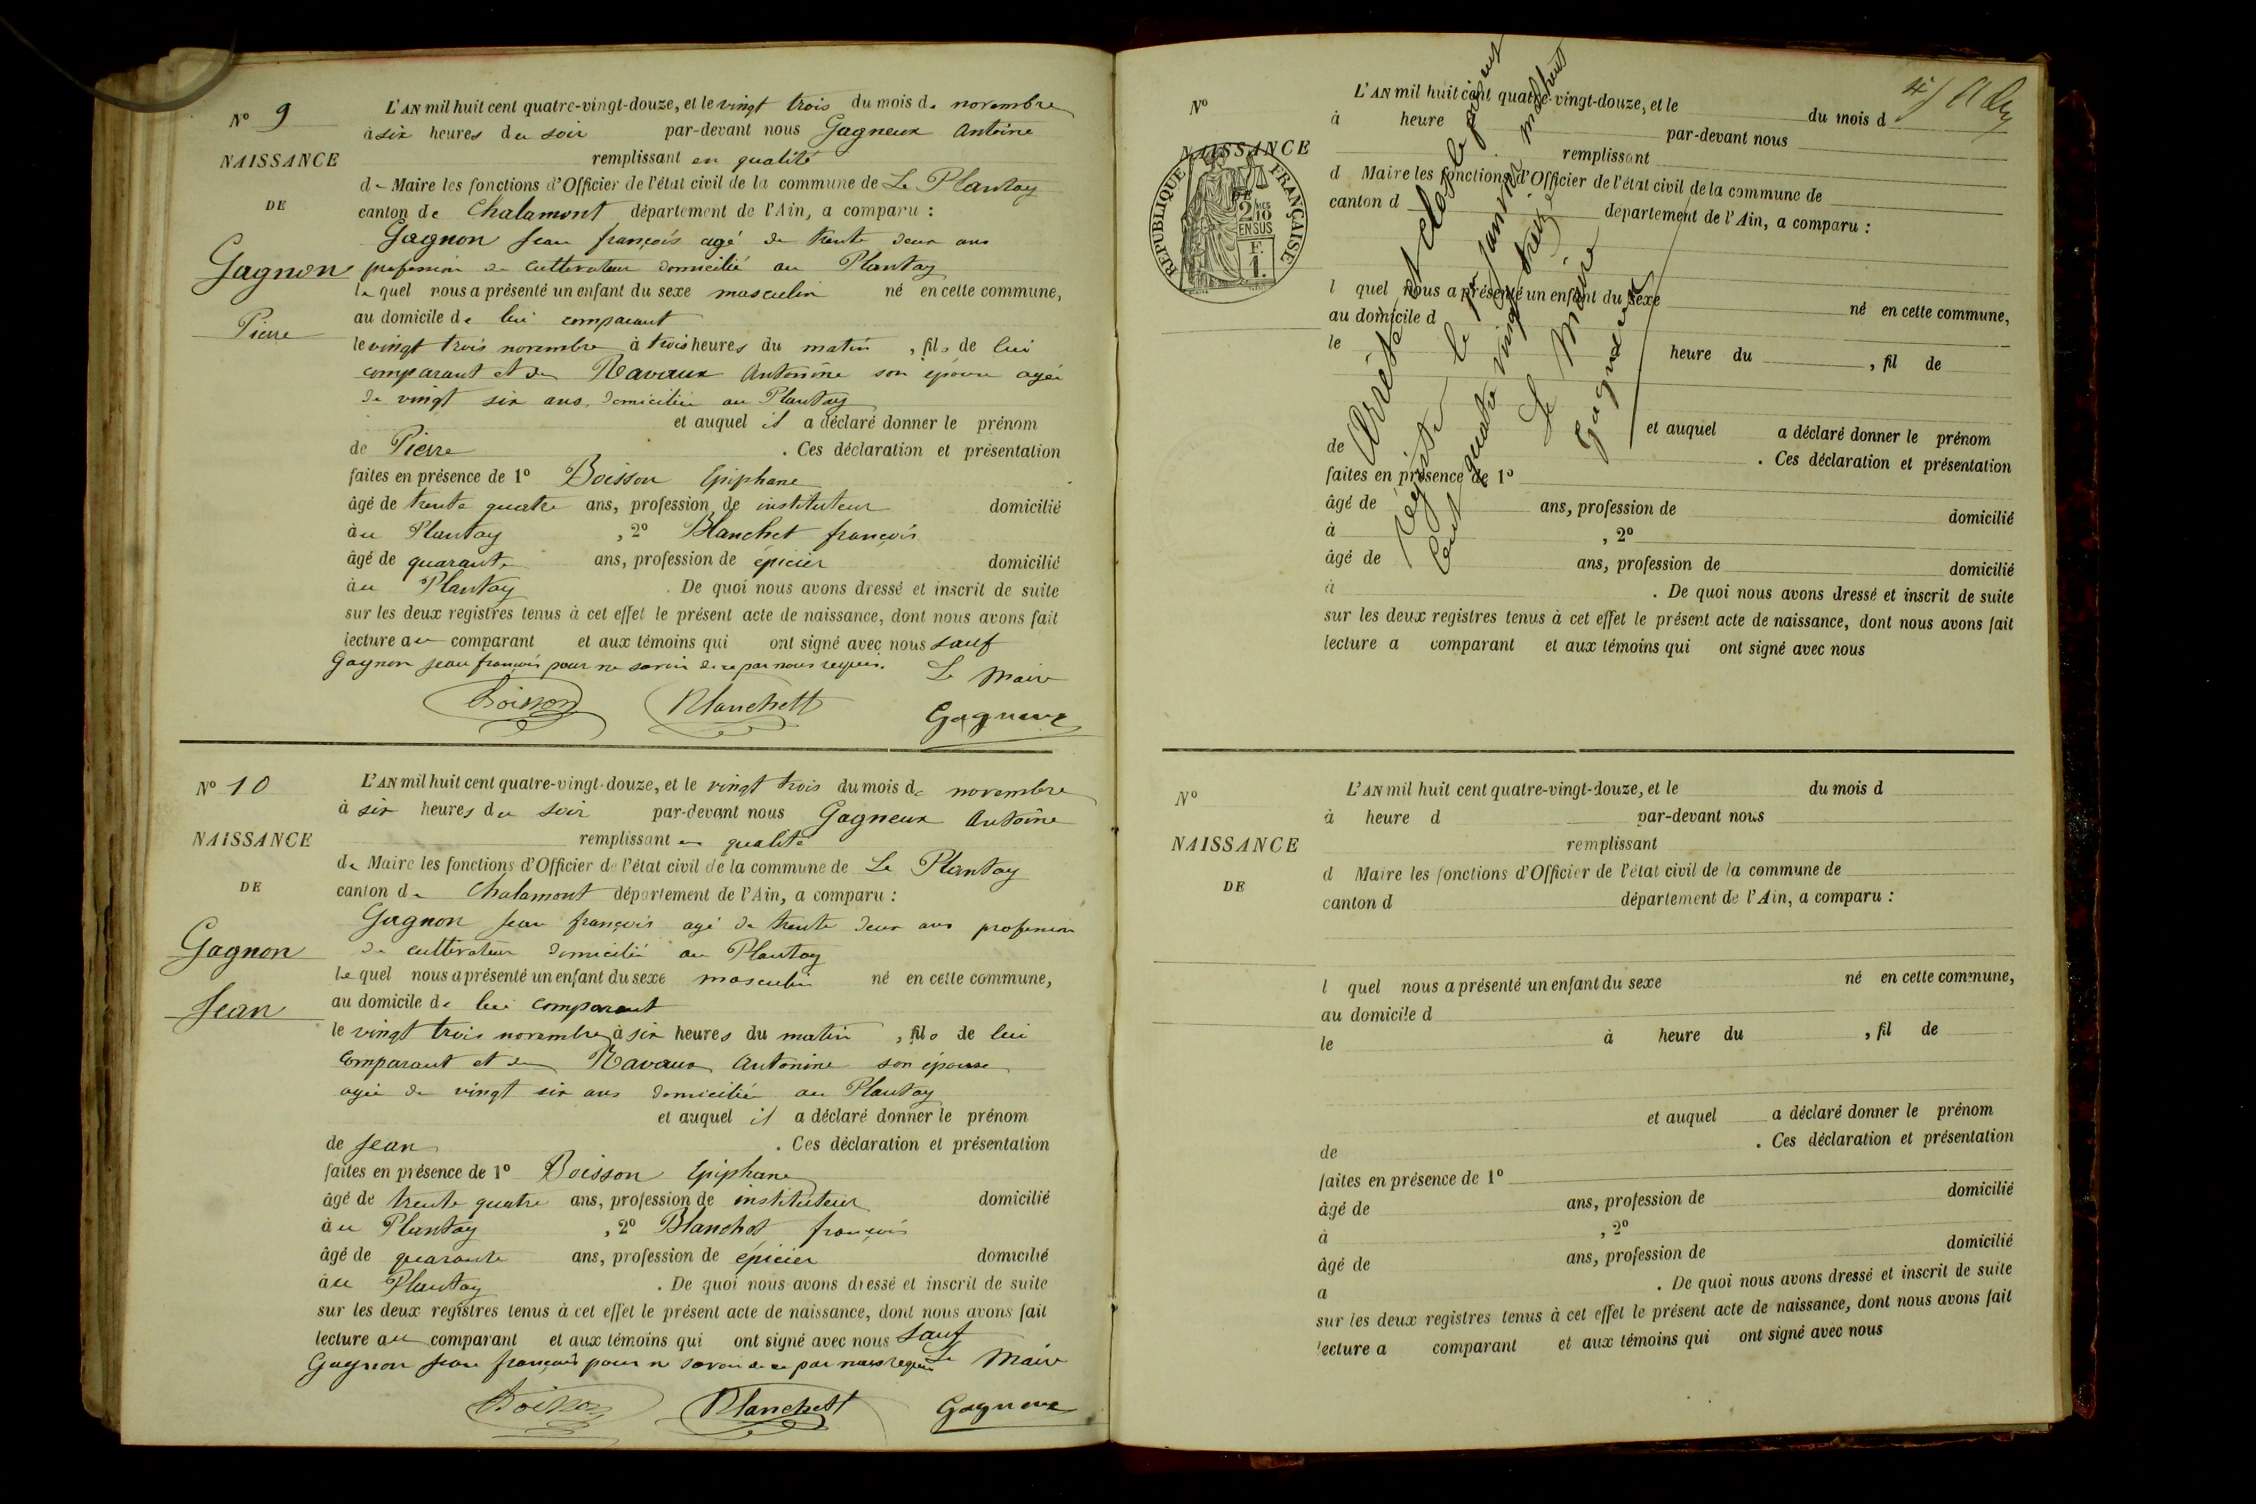 N° 9
NAISSANCE
DE
Gagnon
Pierre
L'AN mil huit cent quatre-vingt-douze, et le vingt trois du mois de novembre
à six heures du soir par-devant nous Gagneux Antoine
remplissant en qualité
de Maire les fonctions d'Officier de l'état civil de la commune de Le Plantay
canton de Chalamont département de l'Ain, a comparu :
Gagnon Jean françois agé de trente deux ans
profession de cultivateur domicilié au Plantay
le quel nous a présenté un enfant du sexe masculin né en cette commune,
au domicile de lui comparant
le vingt trois novembre à trois heures du matin , fils de lui
comparant et de Ravaux Antonine son épouse agée
de vingt six ans domiciliée au Plantay
et auquel il a déclaré donner le prénom
de Pierre . Ces déclaration et présentation
faites en présence de 1° Boisson Epiphane
âgé de trente quatre ans, profession de instituteur domicilié
àu Plantay , 2° Blanchet françois
âgé de quarante ans, profession de épicier domicilié
àu Plantay . De quoi nous avons dressé et inscrit de suite
sur les deux registres tenus à cet effet le présent acte de naissance, dont nous avons fait
lecture au comparant et aux témoins qui ont signé avec nous sauf
Gagnon Jean françois pour ne savoir de ce par nous requis. Le Maire
Boisson Blanchett Gagneux
N° 10
NAISSANCE
DE
Gagnon
Jean
L'AN mil huit cent quatre-vingt-douze, et le vingt trois du mois de novembre
à six heures du soir par-devant nous Gagneux Antoine
remplissant en qualité
de Maire les fonctions d'Officier de l'état civil de la commune de Le Plantay
canton de Chalamont département de l'Ain, a comparu :
Gagnon Jean françois agé de trente deux ans profession
de cultivateur domicilié au Plantay
le quel nous a présenté un enfant du sexe masculin né en cette commune,
au domicile de lui comparant
le vingt trois novembre à six heures du matin , fils de lui
comparant et de Ravaux Antonine son épouse
agée de vingt six ans domiciliée au Plantay
et auquel il a déclaré donner le prénom
de Jean . Ces déclaration et présentation
faites en présence de 1° Boisson Epiphane
âgé de trente quatre ans, profession de instituteur domicilié
àu Plantay , 2° Blanchet françois
âgé de quarante ans, profession de épicier domicilié
àu Plantay . De quoi nous avons dressé et inscrit de suite
sur les deux registres tenus à cet effet le présent acte de naissance, dont nous avons fait
lecture au comparant et aux témoins qui ont signé avec nous sauf
Gagnon Jean françois pour ne savoir de ce par nous requis Le Maire
Boisson Blanchett Gagneux
N°
NAISSANCE
REPUBLIQUE FRANÇAISE
2/10 MES EN SUS
F. 1.
L'AN mil huit cent quatre-vingt-douze, et le du mois d
à heure par-devant nous
remplissant
d Maire les fonctions d'Officier de l'état civil de la commune de
canton d département de l'Ain, a comparu :
l quel nous a présenté un enfant du sexe né en cette commune,
au domicile d
le heure du , fil de
et auquel a déclaré donner le prénom
de . Ces déclaration et présentation
faites en présence de 1°
âgé de ans, profession de domicilié
à , 2°
âgé de ans, profession de domicilié
à . De quoi nous avons dressé et inscrit de suite
sur les deux registres tenus à cet effet le présent acte de naissance, dont nous avons fait
lecture a comparant et aux témoins qui ont signé avec nous
Arrêté et clos le présent
registre le 1er janvier mil huit
cent quatre vingt treize
Le Maire
Gagneux
N°
NAISSANCE
DE
L'AN mil huit cent quatre-vingt-douze, et le du mois d
à heure d par-devant nous
remplissant
d Maire les fonctions d'Officier de l'état civil de la commune de
canton d département de l'Ain, a comparu :
l quel nous a présenté un enfant du sexe né en cette commune,
au domicile d
le à heure du , fil de
et auquel a déclaré donner le prénom
de . Ces déclaration et présentation
faites en présence de 1°
âgé de ans, profession de domicilié
à , 2°
âgé de ans, profession de domicilié
a . De quoi nous avons dressé et inscrit de suite
sur les deux registres tenus à cet effet le présent acte de naissance, dont nous avons fait
lecture a comparant et aux témoins qui ont signé avec nous